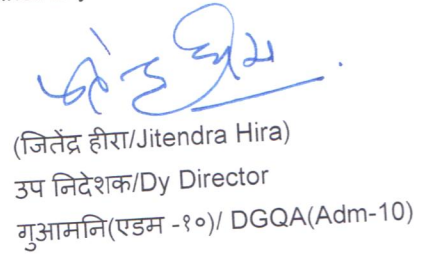 (जितेंद्र हीरा/Jitendra Hira)
उप निदेशक/Dy Director
गुआमनि(एडम -१०)/ DGQA(Adm-10)